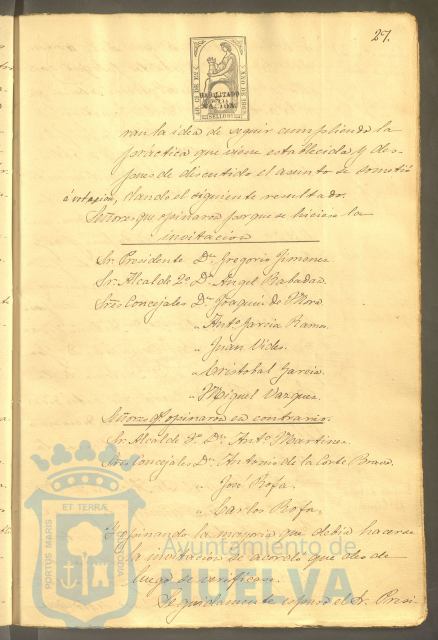 27.
HABILITADO
POR LA
NACION.
SELLO 10º
AÑO DE 1869
ran la idea de seguir cumpliendo la
práctica que viene establecida y des-
pues de discutido el asunto se sometió
á votacion, dando el siguiente resultado.
Señores que opinaron porque se hiciera la
invitacion
Sr. Presidente Dn. Gregorio Jimenez
Sr. Alcalde 2º Dn. Angel Rabadan
Sres Concejales Dn. Joaquin de Mora
" Antº Garcia Ramos
" Juan Vides.
" Cristobal Garcia.
" Miguel Vazquez.
Señores q. opinaron en contrario.
Sr. Alcalde 3º Dn. Antº Martinez
Sres Concejales Dn. Antonio de la Corte Bravo.
" José Rofa.
" Carlos Rofa.
Y opinando la mayoria que debia hacerse
la invitacion se acordó que des de
luego se verificase.
Seguidamente espuso el Sr. Presi-
PORTUS MARIS
ET TERRÆ
CUSTODIA
Ayuntamiento de
HUELVA